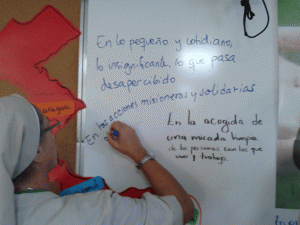 En lo pequeño y cotidiano,
lo insignificante, lo que pasa
desapercibido
En las acciones misioneras y solidarias
En la acogida de
una mirada limpia
de las personas con las que
vivo y trabajo